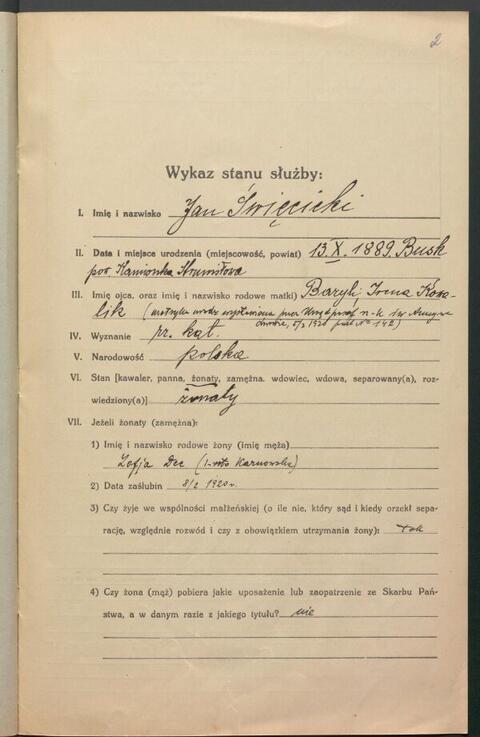 2
Wykaz stanu służby:
I. Imię i nazwisko Jan Święcicki
II. Data i miejsce urodzenia (miejscowość, powiat) 13.X.1889. Busk
pow. Kamionka Strumiłowa
III. Imię ojca, oraz imię i nazwisko rodowe matki) Bazyli, Irena Kowa-
lik (metryka urodz. wystawiona przez Urząd paraf.
5/2 1920 142)
IV. Wyznanie rz. kat.
V. Narodowość polska
VI. Stan [kawaler, panna, żonaty, zamężna, wdowiec, wdowa, separowany(a), roz-
wiedziony(a)] żonaty
VII. Jeżeli żonaty (zamężna):
1) Imię i nazwisko rodowe żony (imię męża)
Zofja Dec (1-voto Karnowska)
2) Data zaślubin 8/2 1920 r.
3) Czy żyje we wspólności małżeńskiej (o ile nie, który sąd i kiedy orzekł sepa-
rację, względnie rozwód i czy z obowiązkiem utrzymania żony): tak
4) Czy żona (mąż) pobiera jakie uposażenie lub zaopatrzenie ze Skarbu Pań-
stwa, a w danym razie z jakiego tytułu? nie